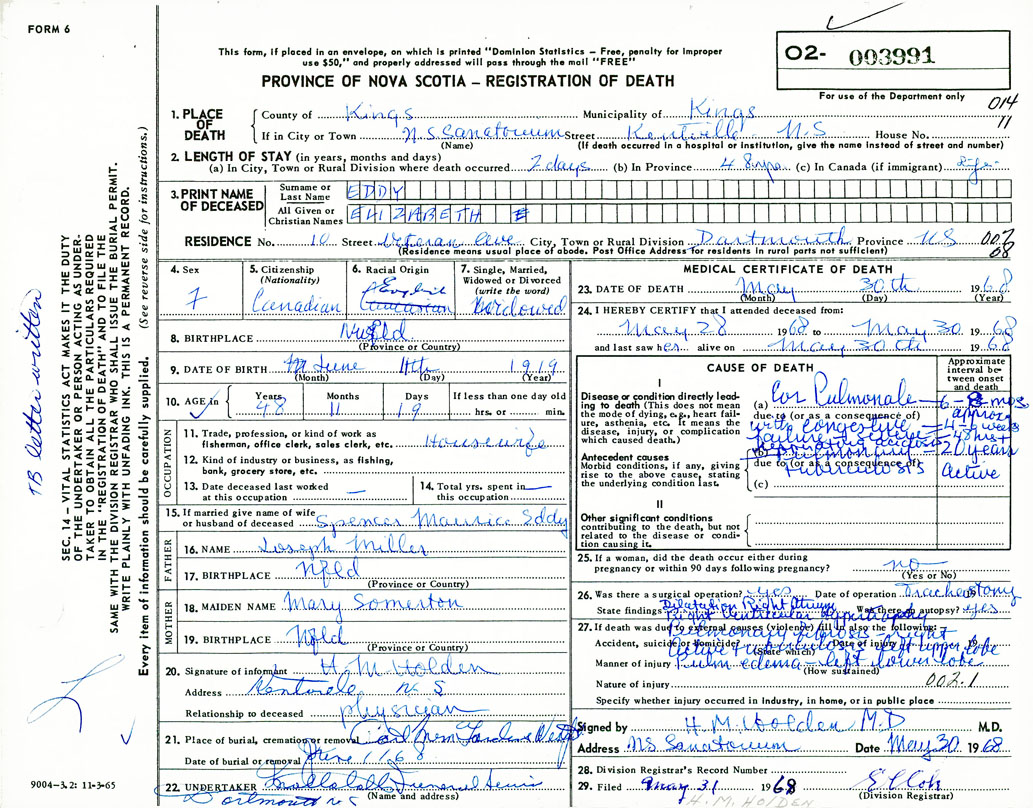 FORM 6
This form, if placed in an envelope, on which is printed "Dominion Statistics – Free, penalty for improper
use $50," and properly addressed will pass through the mail "FREE"
PROVINCE OF NOVA SCOTIA – REGISTRATION OF DEATH
O2- 003991
For use of the Department only
014
11
1. PLACE OF DEATH
County of Kings Municipality of Kings
If in City or Town N.S. Sanatorium Street Kentville N.S House No.
(Name) (If death occurred in a hospital or institution, give the name instead of street and number)
2. LENGTH OF STAY (in years, months and days)
(a) In City, Town or Rural Division where death occurred 2 days (b) In Province 48 yrs (c) In Canada (if immigrant)
3. PRINT NAME OF DECEASED
Surname or Last Name EDDY
All Given or Christian Names ELIZABETH E
RESIDENCE No. 10 Street Veteran Ave City, Town or Rural Division Dartmouth Province NS
(Residence means usual place of abode. Post Office Address for residents in rural parts not sufficient)
007
08
4. Sex F
5. Citizenship (Nationality) Canadian
6. Racial Origin English Caucasian
7. Single, Married, Widowed or Divorced (write the word) Widowed
8. BIRTHPLACE Nfld
(Province or Country)
9. DATE OF BIRTH June 11th 1919
(Month) (Day) (Year)
10. AGE in Years 48 Months 11 Days 19 If less than one day old
hrs. or min.
OCCUPATION
11. Trade, profession, or kind of work as
fishermen, office clerk, sales clerk, etc. Housewife
12. Kind of industry or business, as fishing,
bank, grocery store, etc.
13. Date deceased last worked
at this occupation —
14. Total yrs. spent in
this occupation —
15. If married give name of wife
or husband of deceased Spencer Maurice Eddy
FATHER
16. NAME Joseph Miller
17. BIRTHPLACE Nfld
(Province or Country)
MOTHER
18. MAIDEN NAME Mary Somerton
19. BIRTHPLACE Nfld
(Province or Country)
20. Signature of informant H. M Holden
Address Kentville N S
Relationship to deceased physician
21. Place of burial, cremation or removal
Date of burial or removal June 1 / 68
22. UNDERTAKER Funeral
(Name and address)
Dartmouth NS
MEDICAL CERTIFICATE OF DEATH
23. DATE OF DEATH May 30th 1968
(Month) (Day) (Year)
24. I HEREBY CERTIFY that I attended deceased from:
May 28 1968 to May 30 1968
and last saw her alive on May 30th 1968
CAUSE OF DEATH
Approximate interval between onset and death
I
Disease or condition directly leading to death (This does not mean the mode of dying, e.g., heart failure, asthenia, etc. It means the disease, injury, or complication which caused death.)
(a) Cor Pulmonale – 6-8 mos
due to (or as a consequence of) approx
with congestive – 4-6 weeks
failure
Antecedent causes
Morbid conditions, if any, giving rise to the above cause, stating the underlying condition last.
(b) Pulmonary – 20 years
due to (or as a consequence of)
tuberculosis active
(c)
II
Other significant conditions contributing to the death, but not related to the disease or condition causing it.
25. If a woman, did the death occur either during
pregnancy or within 90 days following pregnancy? no
(Yes or No)
26. Was there a surgical operation? yes Date of operation Tracheotomy
State findings Dilatation Right Atrium Was there an autopsy? yes
Right Ventricular Hypertrophy
27. If death was due to external causes (violence) fill in also the following:
Pulmonary fibrosis – right
Accident, suicide or homicide? Date of 19
Active tuberculosis left upper lobe
(State which)
Manner of injury Pulm edema – left lower lobe
(How sustained)
Nature of injury 002.1
Specify whether injury occurred in Industry, in home, or in public place
Signed by H. M. Holden M.D M.D.
Address NS Sanatorium Date May 30 1968
28. Division Registrar's Record Number
29. Filed May 31 1968
(Division Registrar)
H. M. HOLDEN
TB letter written
SEC. 14 – VITAL STATISTICS ACT MAKES IT THE DUTY
OF THE UNDERTAKER OR PERSON ACTING AS UNDER-
TAKER TO OBTAIN ALL THE PARTICULARS REQUIRED
IN THE "REGISTRATION OF DEATH" AND TO FILE THE
SAME WITH THE DIVISION REGISTRAR WHO SHALL ISSUE THE BURIAL PERMIT.
WRITE PLAINLY WITH UNFADING INK. THIS IS A PERMANENT RECORD.
Every item of information should be carefully supplied. (See reverse side for instructions.)
9004-3.2: 11-3-65